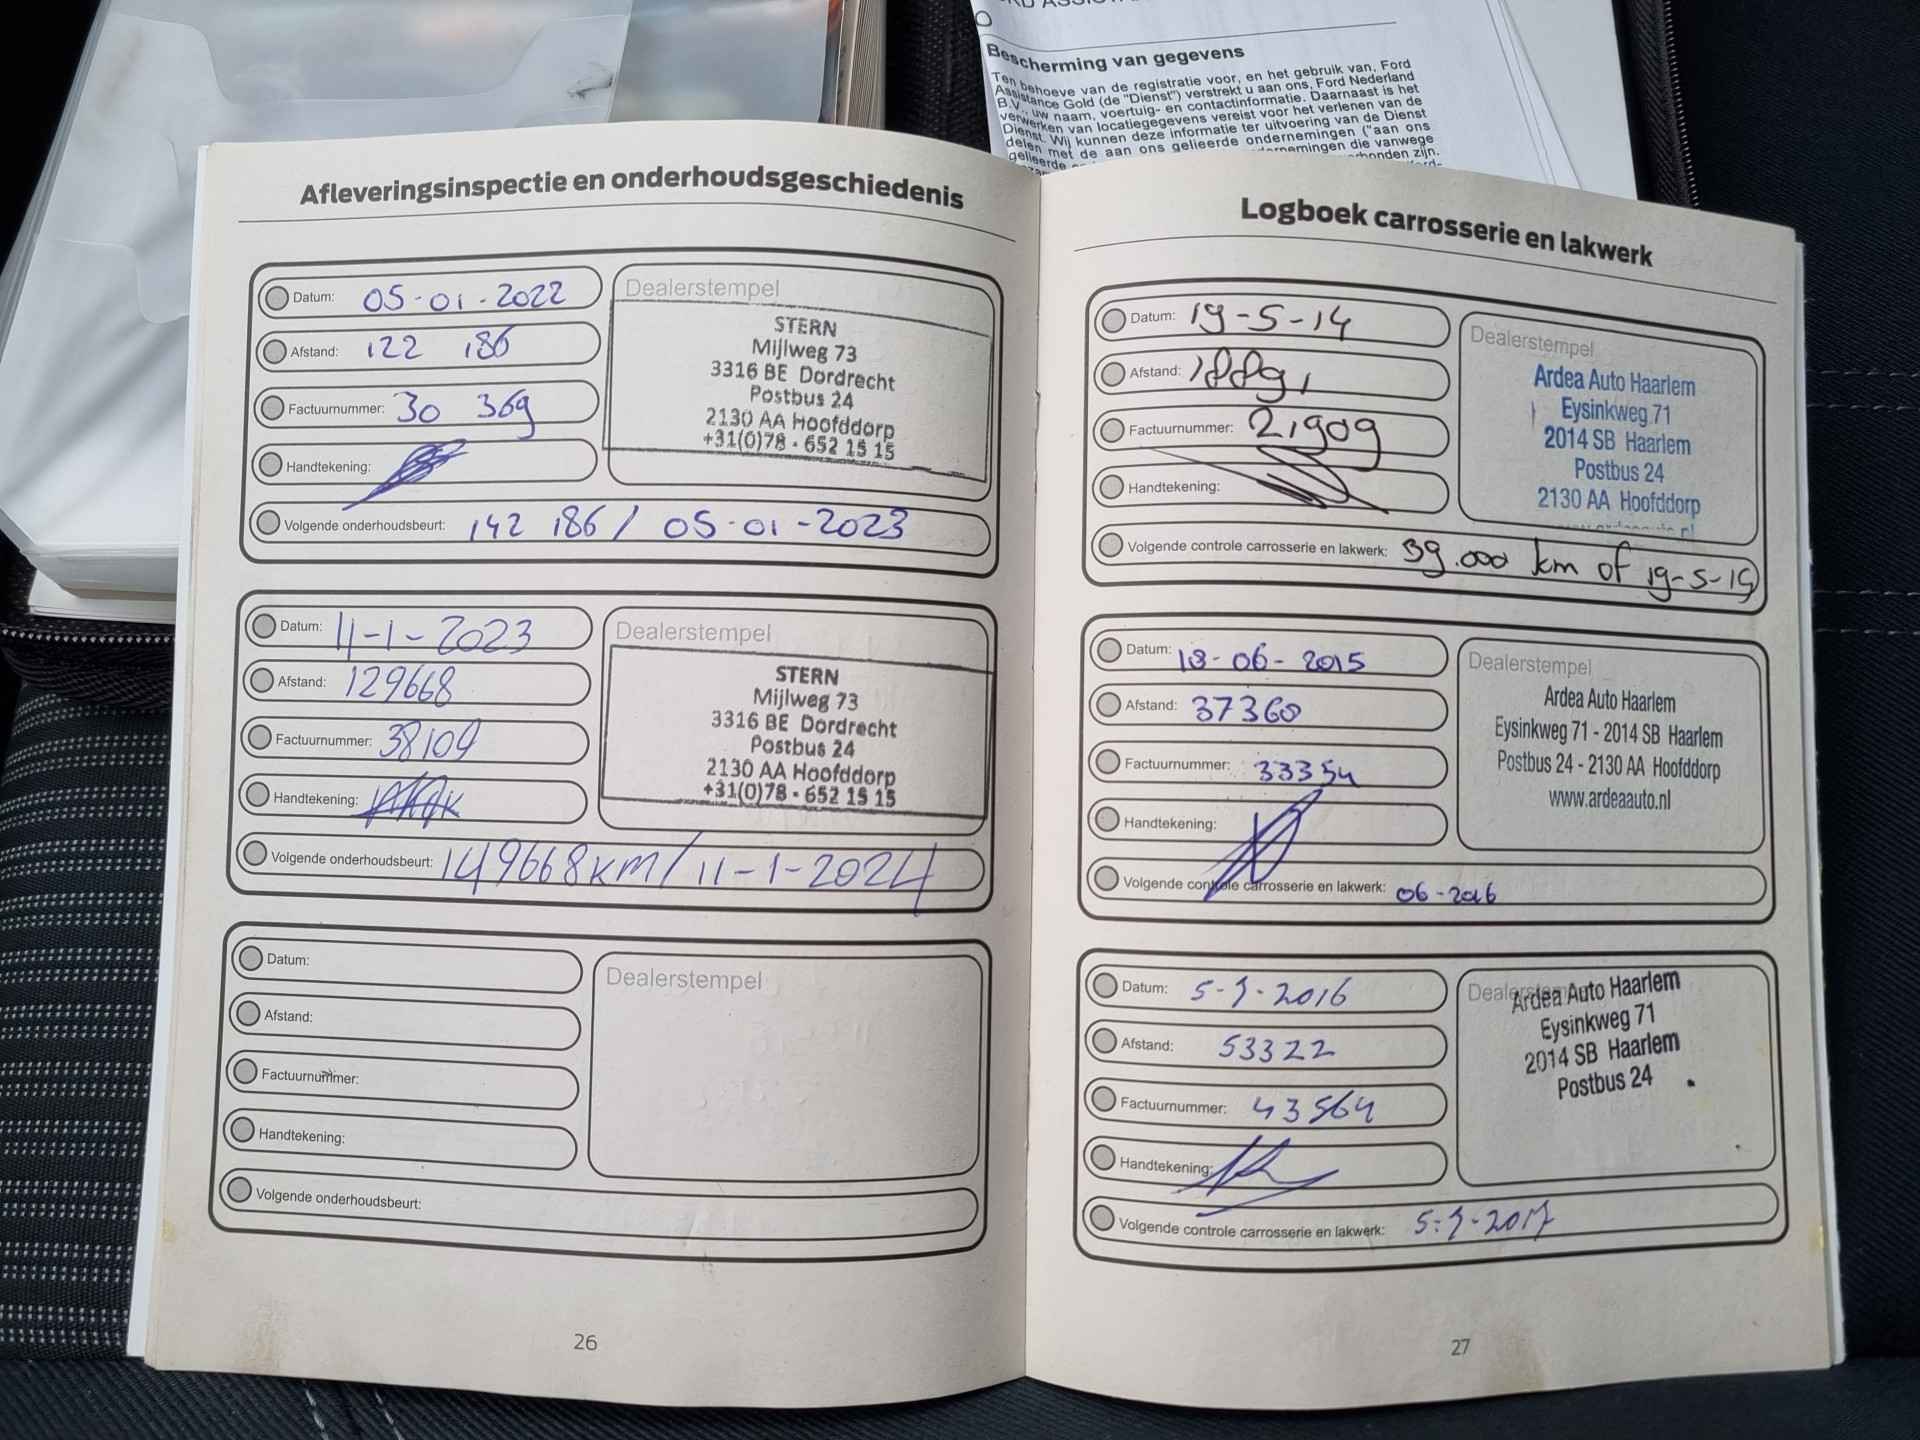 Bescherming van gegevens
Ten behoeve van de registratie voor, en het gebruik van, Ford
Assistance Gold (de "Dienst") verstrekt u aan ons, Ford Nederland
B.V., uw naam, voertuig- en contactinformatie. Daarnaast is het
verwerken van locatiegegevens vereist voor het verlenen van de
Dienst. Wij kunnen deze informatie ter uitvoering van de Dienst
delen met de aan ons gelieerde ondernemingen ("aan ons
gelieerde ondernemingen die vanwege
Afleveringsinspectie en onderhoudsgeschiedenis
Datum: 05-01-2022
Afstand: 122 186
Factuurnummer: 30 369
Handtekening:
Volgende onderhoudsbeurt: 142 186 / 05-01-2023
Dealerstempel
STERN
Mijlweg 73
3316 BE Dordrecht
Postbus 24
2130 AA Hoofddorp
+31(0)78 - 652 15 15
Datum: 11-1-2023
Afstand: 129668
Factuurnummer: 38109
Handtekening:
Volgende onderhoudsbeurt: 149668km/11-1-2024
Dealerstempel
STERN
Mijlweg 73
3316 BE Dordrecht
Postbus 24
2130 AA Hoofddorp
+31(0)78 - 652 15 15
Datum:
Afstand:
Factuurnummer:
Handtekening:
Volgende onderhoudsbeurt:
Dealerstempel
26
Logboek carrosserie en lakwerk
Datum: 19-5-14
Afstand: 18891
Factuurnummer: 21909
Handtekening:
Volgende controle carrosserie en lakwerk: 39.000 km of 19-5-15
Dealerstempel
Ardea Auto Haarlem
Eysinkweg 71
2014 SB Haarlem
Postbus 24
2130 AA Hoofddorp
Datum: 18-06-2015
Afstand: 37360
Factuurnummer: 33354
Handtekening:
Volgende controle carrosserie en lakwerk: 06-2016
Dealerstempel
Ardea Auto Haarlem
Eysinkweg 71 - 2014 SB Haarlem
Postbus 24 - 2130 AA Hoofddorp
www.ardeaauto.nl
Datum: 5-7-2016
Afstand: 53322
Factuurnummer: 43564
Handtekening:
Volgende controle carrosserie en lakwerk: 5-7-2017
Dealerstempel
Ardea Auto Haarlem
Eysinkweg 71
2014 SB Haarlem
Postbus 24
27